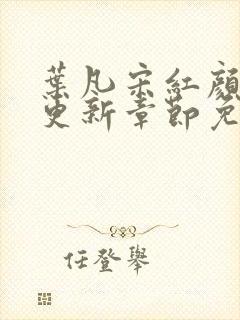 葉凡宋紅顏
更新章節免
任登舉